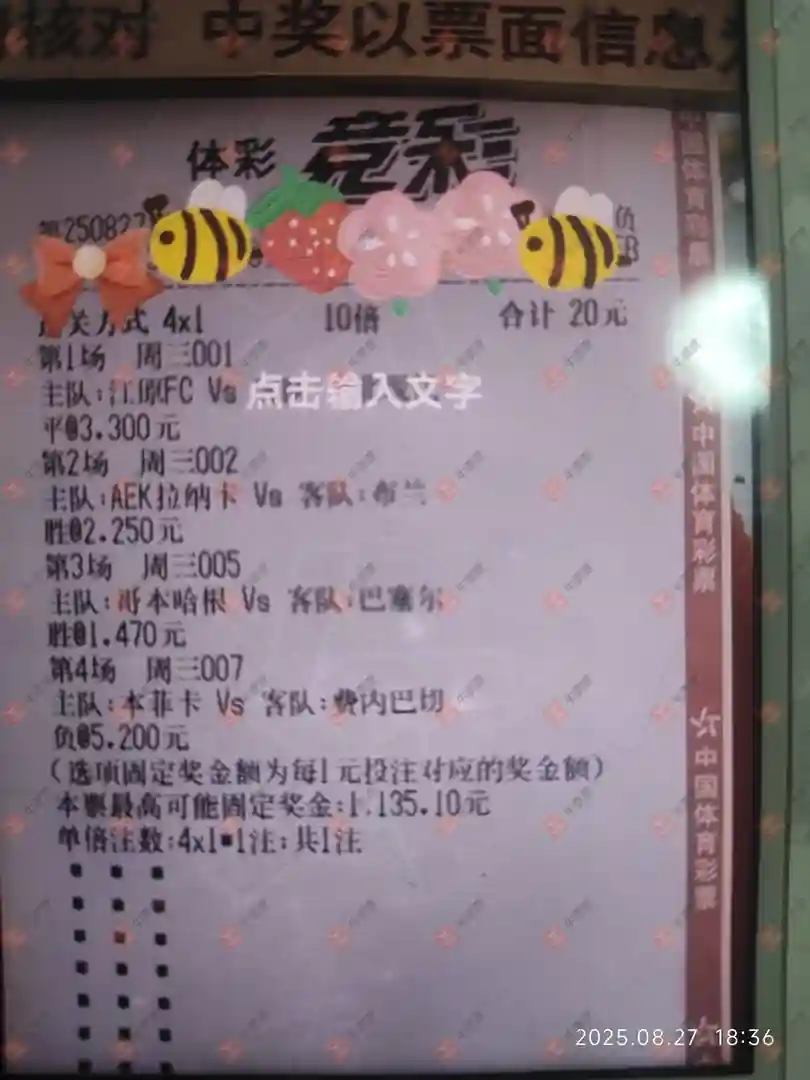 核对 中奖以票面信息为
体彩 竞彩
第250827 负
B
过关方式 4x1 10倍 合计 20元
第1场 周三001
主队:江原FC Vs 点击输入文字
平@3.300元
第2场 周三002
主队:AEK拉纳卡 Vs 客队:布兰
胜@2.250元
第3场 周三005
主队:哥本哈根 Vs 客队:巴塞尔
胜@1.470元
第4场 周三007
主队:本菲卡 Vs 客队:费内巴切
负@5.200元
(选项固定奖金额为每1元投注对应的奖金额)
本票最高可能固定奖金:1,135.10元
单倍注数:4x1*1注;共1注
中国体育彩票
中国体育彩票
中国体育彩票
2025.08.27 18:36